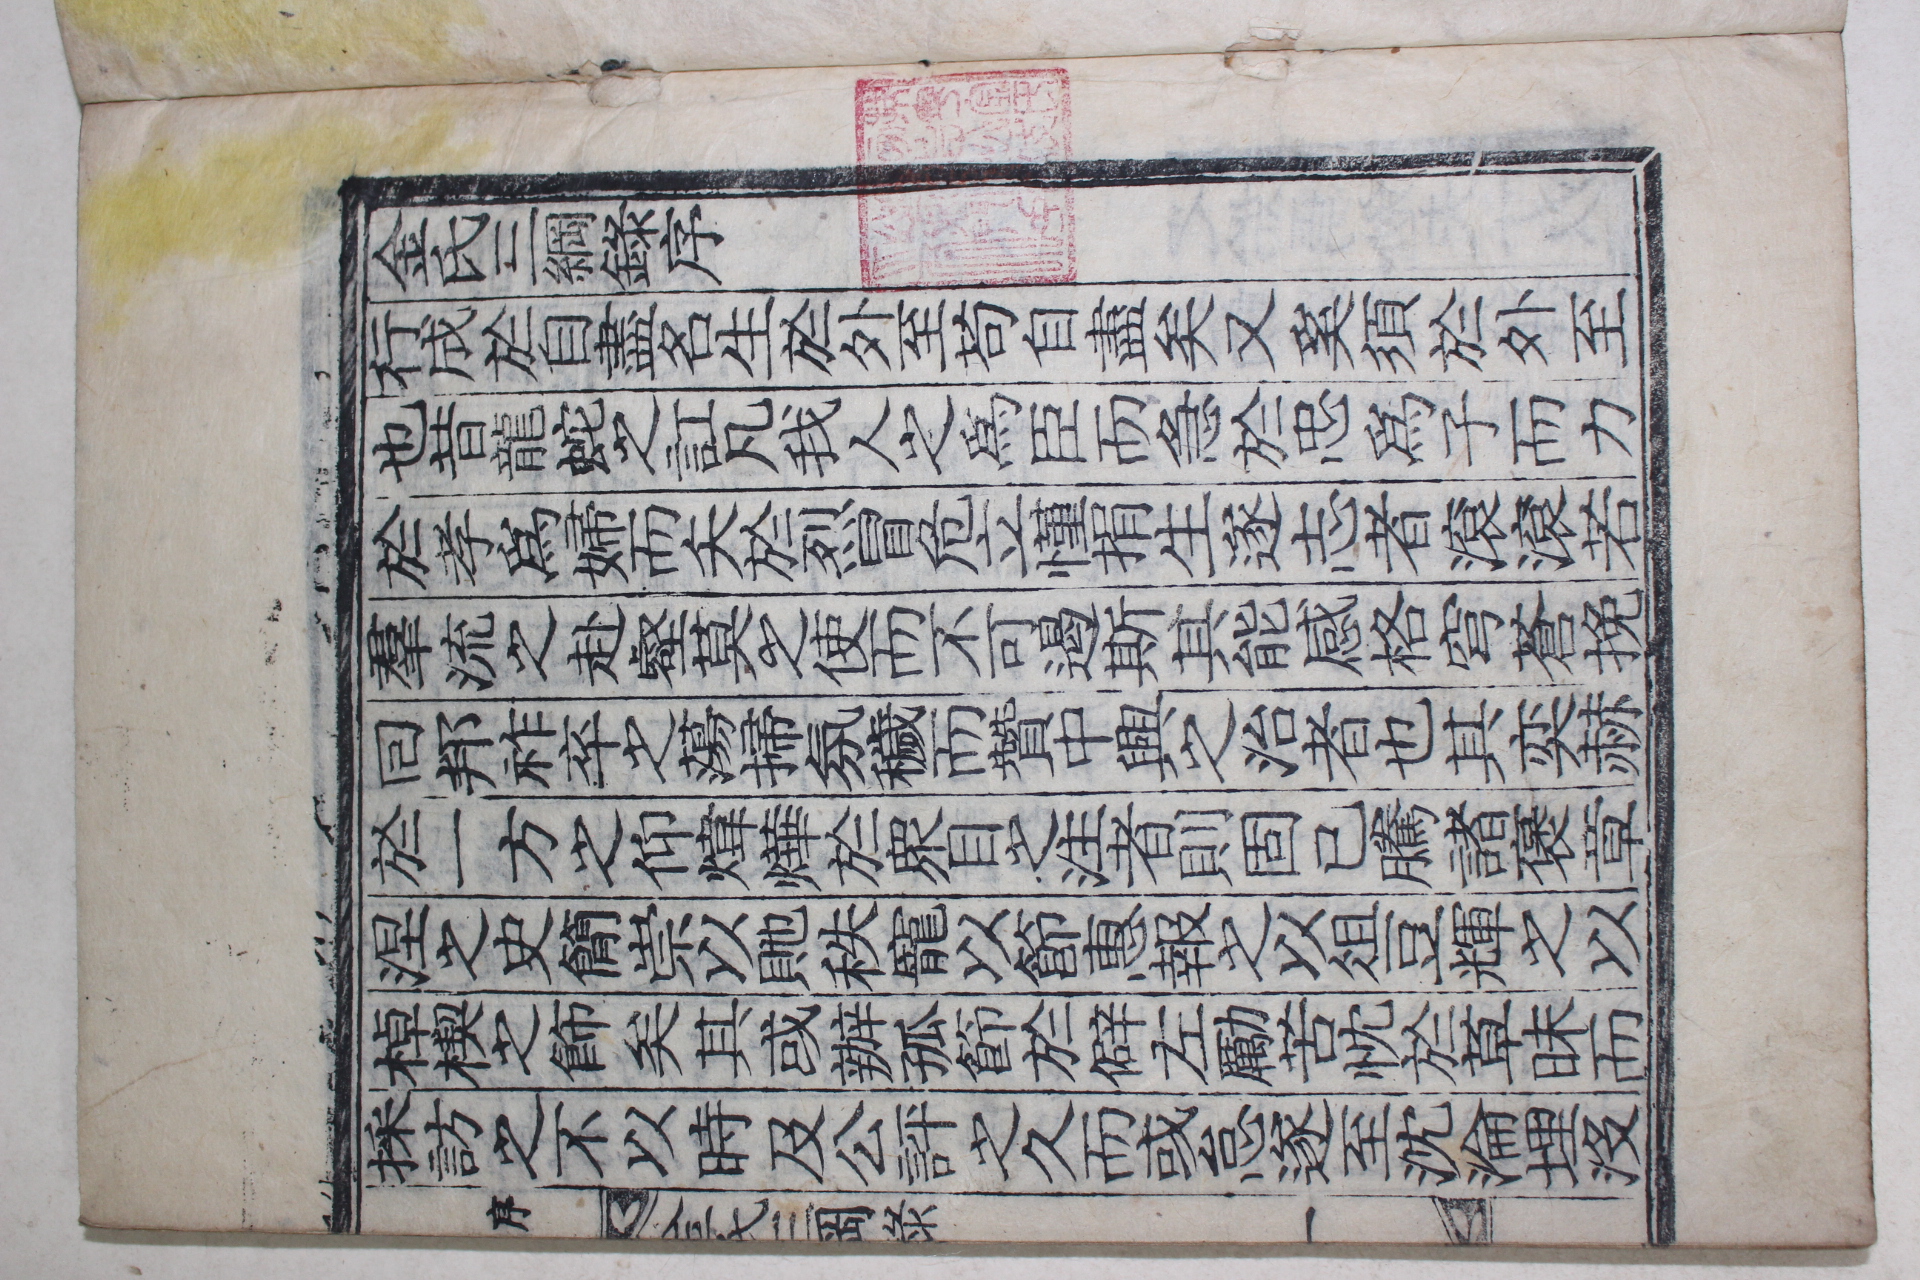 金氏三綱錄序
行成於自盡名生於外至苟自盡矣又奚須於外至
也昔龍蛇之訌凡我人之爲臣而急於忠爲子而力
於孝爲婦而矢於烈冒危立慬捐生遂志者滾滾若
羣流之赴壑莫之使而不可遏斯其能感格穹蒼挽
回邦祚卒之蕩掃氛穢而贊中興之治者也其奕赫
於一方之仰煒燁於衆目之注者則固已騰諸褒章
涅之史簡崇以貤秩寵以節惠報之以俎豆輝之以
棹楔之飾矣其或辦孤節於僻左勵苦忱於草昧而
採訪之不以時及公評之久而或忘遂至沈淪埋沒
序 金氏三綱錄 一